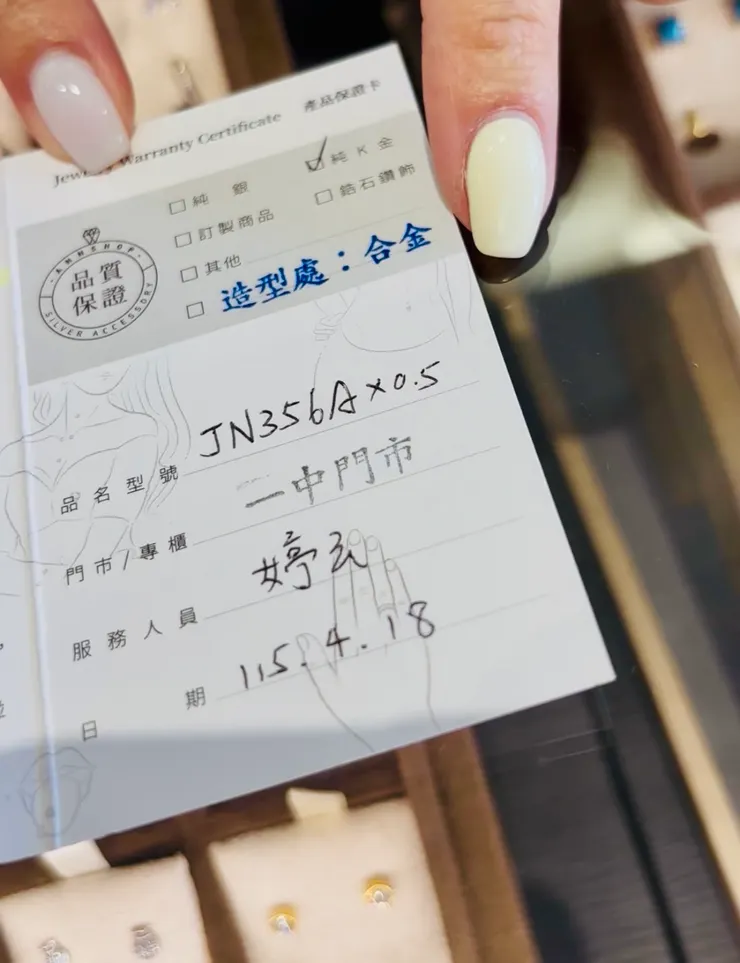 Jewelry Warranty Certificate 產品保證卡
□純銀 ☑純K金
□訂製商品 □鋯石鑽飾
□其他
□ 造型處：合金
ANNSHOP
品質
保證
SILVER ACCESSORY
品名型號 JN356A×0.5
門市/專櫃 一中門市
服務人員 婷
日期 115.4.18